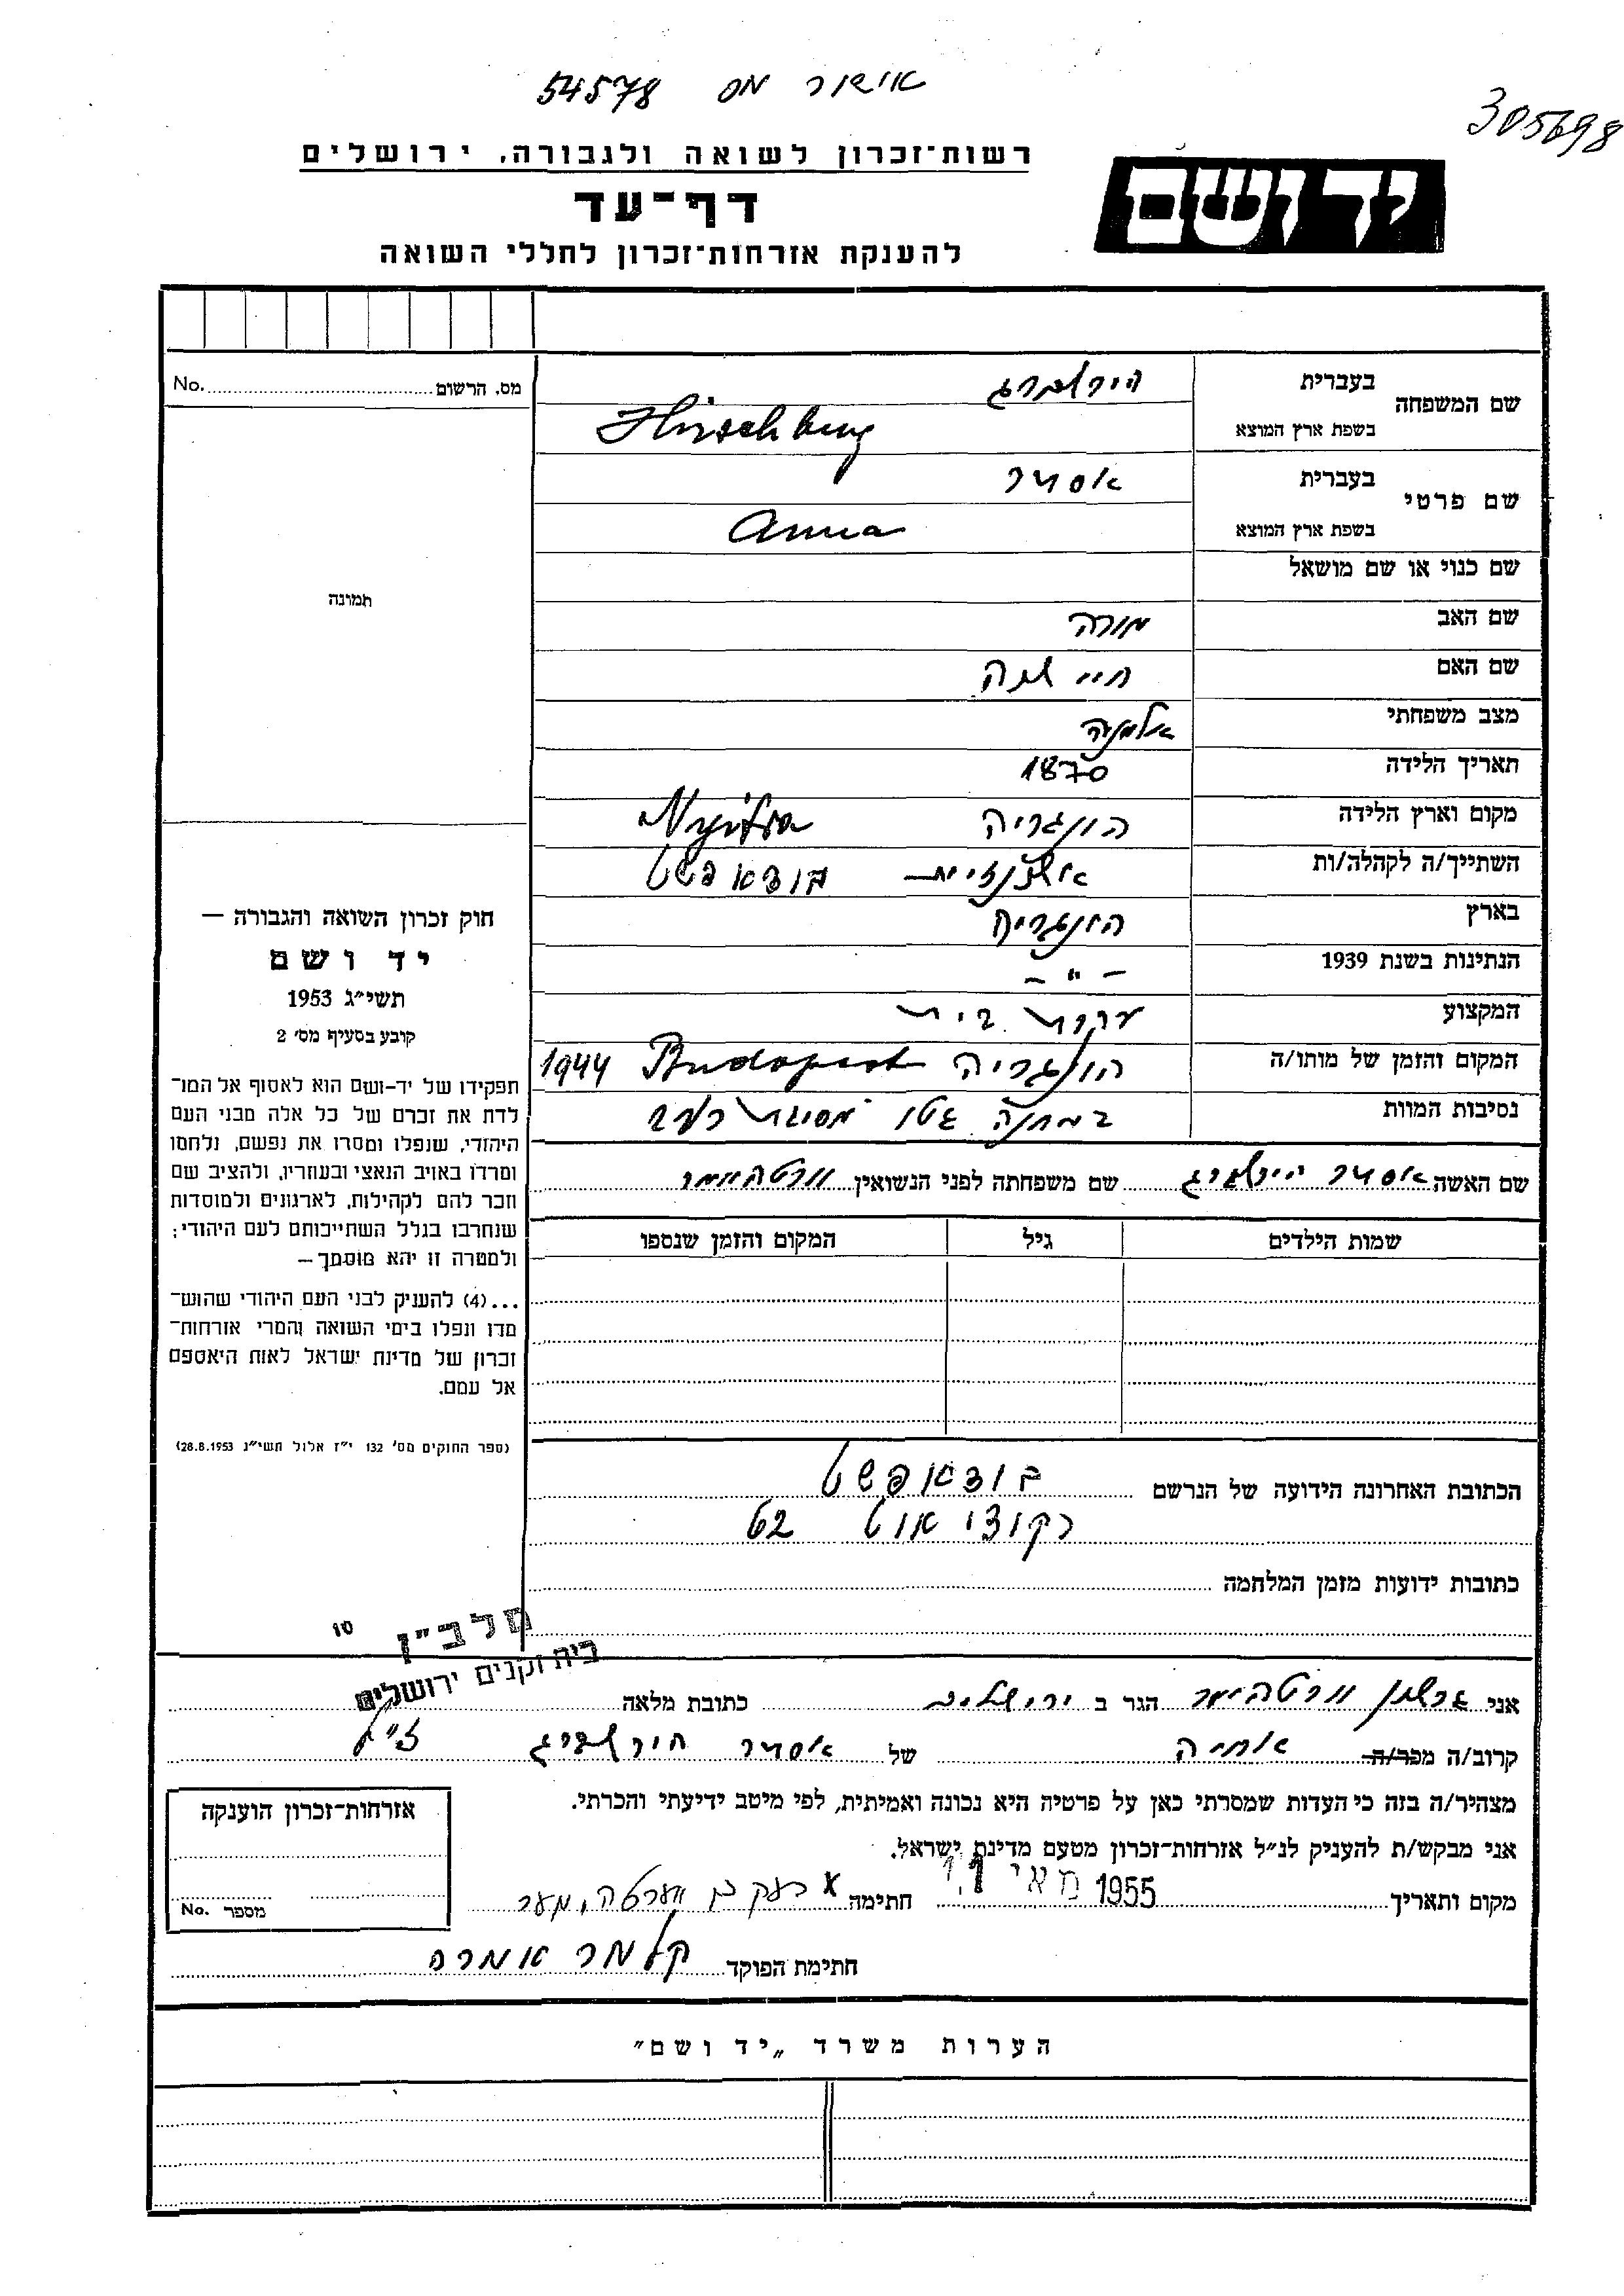 אישור מס 54578
305698
רשות־זכרון לשואה ולגבורה, ירושלים
יד ושם
דף־עד
להענקת אזרחות־זכרון לחללי השואה
מס. הרשום No.
שם המשפחה בעברית הירשברג
בשפת ארץ המוצא Hirschberg
שם פרטי בעברית אסתר
בשפת ארץ המוצא Anna
תמונה
שם כנוי או שם מושאל
שם האב מורה
שם האם חיי שרה
מצב משפחתי אלמנה
תאריך הלידה 1870
מקום וארץ הלידה הונגריה Nyitra
השתייך/ה לקהלה/ות אשכנזית בודאפשט
בארץ הונגריה
הנתינות בשנת 1939 – " –
המקצוע עקרת בית
המקום והזמן של מותו/ה הונגריה Budapest 1944
נסיבות המוות במחנה גטו מסיבת רעב
שם האשה אסתר הירשברג שם משפחתה לפני הנשואין ורטהימר
שמות הילדים גיל המקום והזמן שנספו
חוק זכרון השואה והגבורה —
יד ושם
תשי״ג 1953
קובע בסעיף מס׳ 2
תפקידו של יד-ושם הוא לאסוף אל המו־
לדת את זכרם של כל אלה מבני העם
היהודי, שנפלו ומסרו את נפשם, נלחמו
ומרדו באויב הנאצי ובעוזריו, ולהציב שם
וזכר להם לקהילות, לארגונים ולמוסדות
שנחרבו בגלל השתייכותם לעם היהודי;
ולמטרה זו יהא מוסמך —
...(4) להעניק לבני העם היהודי שהוש־
מדו ונפלו בימי השואה והמרי אזרחות־
זכרון של מדינת ישראל לאות היאספם
אל עמם.
(ספר החוקים מס׳ 132 י״ז אלול תשי״ג 28.8.1953)
הכתובת האחרונה הידועה של הנרשם בודאפשט
רקוצי אוט 62
כתובות ידועות מזמן המלחמה
10
מלב״ן
בית זקנים ירושלים
אני ורטהימר הגר ב ירושלים כתובת מלאה
קרוב/ה מכר/ה אחיה של אסתר הירשברג ז״ל
מצהיר/ה בזה כי העדות שמסרתי כאן על פרטיה היא נכונה ואמיתית, לפי מיטב ידיעתי והכרתי.
אני מבקש/ת להעניק לנ״ל אזרחות־זכרון מטעם מדינת ישראל.
מקום ותאריך 11 מאי 1955 חתימה x
חתימת הפוקד קלמר אמרה
אזרחות־זכרון הוענקה
מספר No.
הערות משרד „יד ושם״